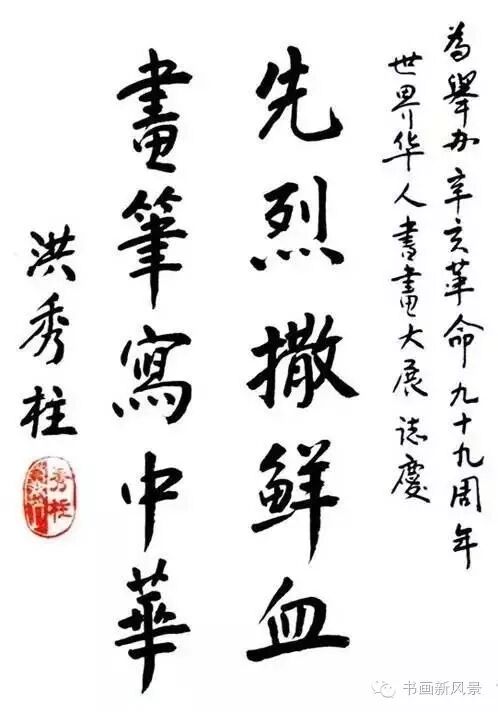 為舉办辛亥革命九十九周年
世界华人書畫大展誌慶
先烈撒鲜血
畫筆寫中華
洪秀柱
秀柱
书画新风景